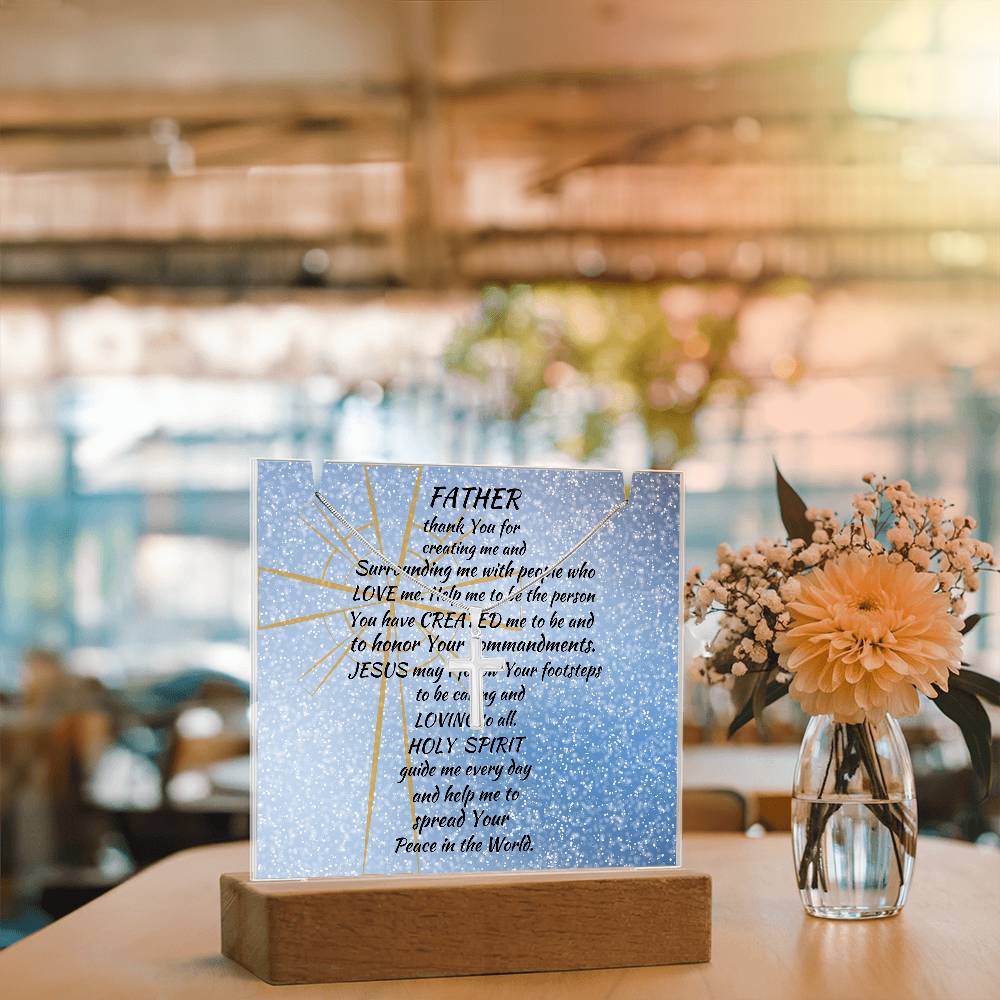 FATHER
thank You for
creating me and
Surrounding me with people who
LOVE me. Help me to be the person
You have CREATED me to be and
to honor Your Commandments.
JESUS may I follow Your footsteps
to be caring and
LOVING to all.
HOLY SPIRIT
guide me every day
and help me to
spread Your
Peace in the World.